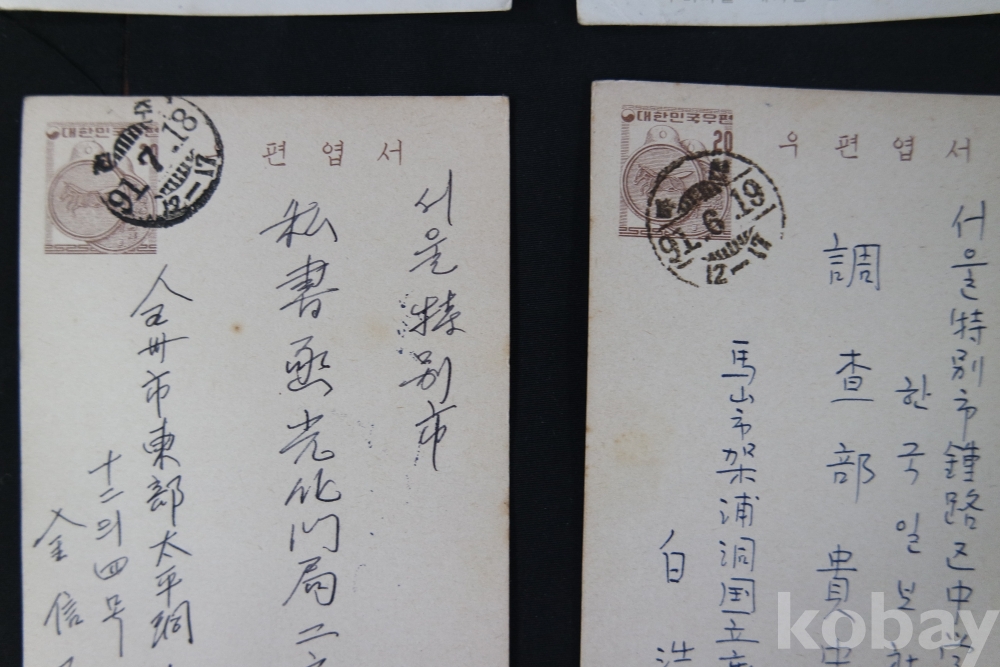 대한민국우편
편엽서
주
91.7.18
12-17
서울特別市
私書函光化門局二
全州市東部太平洞
十二의四号
金信
대한민국우편
20
우편엽서
91.6.19
12-17
서울特別市鍾路区中学
한국일보社
調査部貴中
馬山市架浦洞国立
白浩
kobay